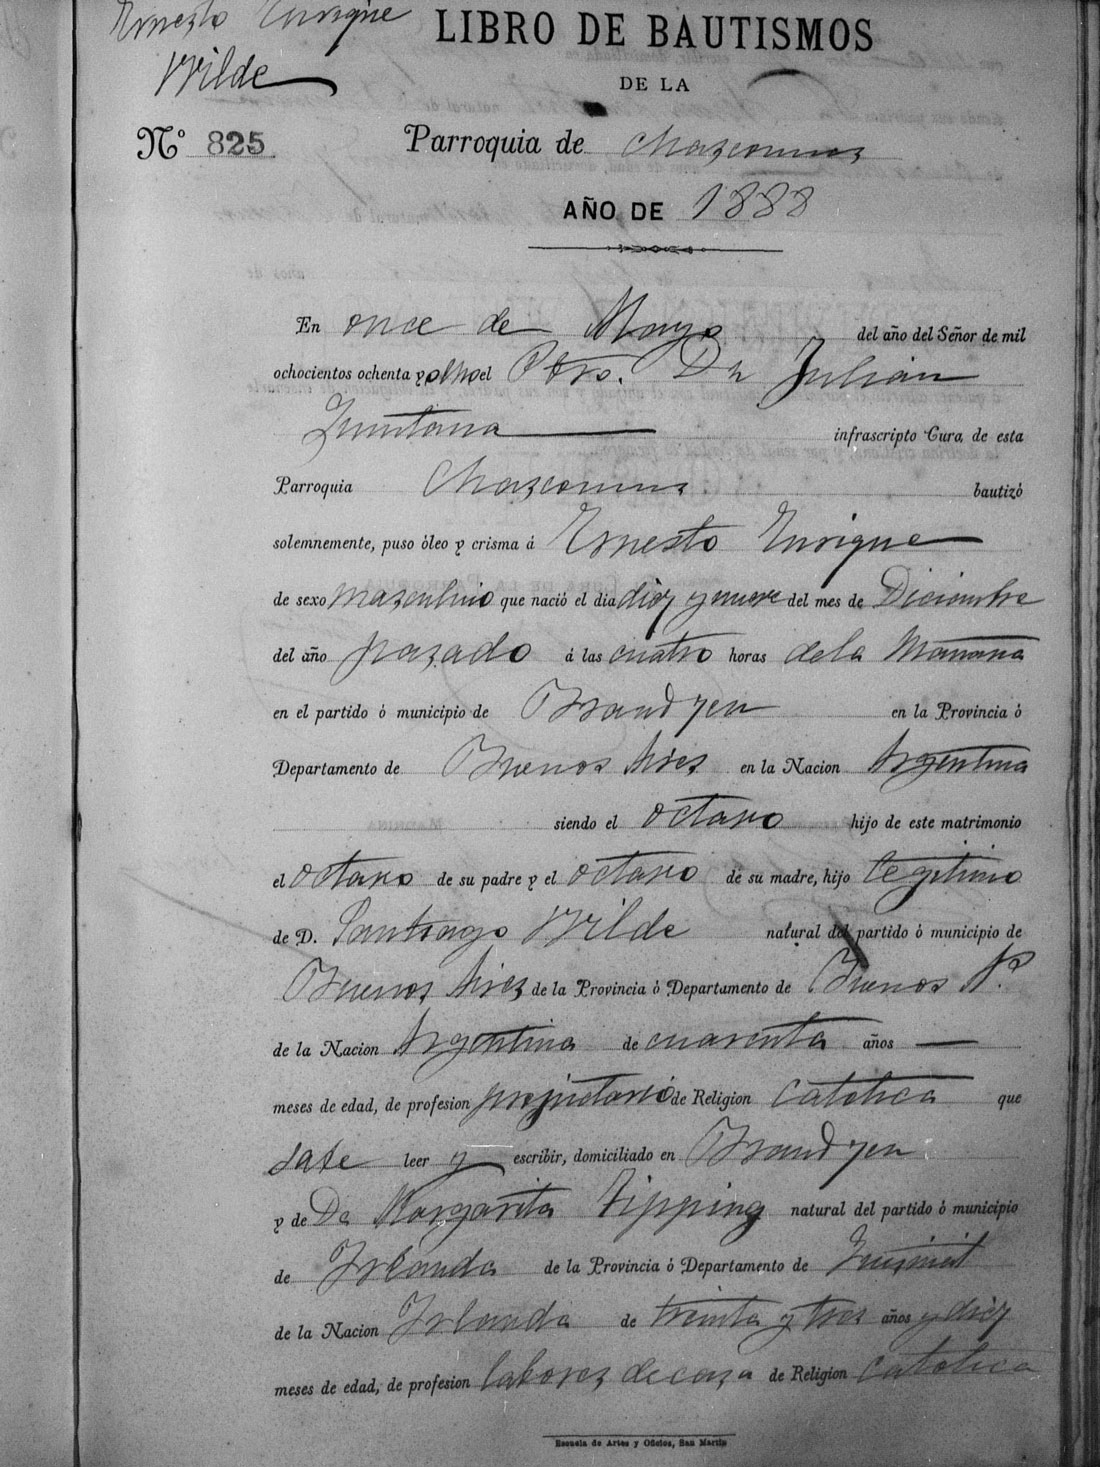 Ernesto Enrique
Wilde
LIBRO DE BAUTISMOS
DE LA
Nº 825
Parroquia de Chazcomuz
AÑO DE 1888
En once de Mayo del año del Señor de mil
ochocientos ochenta y ocho el Pbro. Dn Julián
Quintana infrascripto Cura de esta
Parroquia Chazcomuz bautizó
solemnemente, puso óleo y crisma á Ernesto Enrique
de sexo mazculino que nació el dia diez y nueve del mes de Diciembre
del año pazado á las cuatro horas de la Mañana
en el partido ó municipio de Brandzen en la Provincia ó
Departamento de Buenos Airez en la Nacion Argentina
siendo el octavo hijo de este matrimonio
el octavo de su padre y el octavo de su madre, hijo legítimo
de D. Santiago Wilde natural del partido ó municipio de
Buenos Airez de la Provincia ó Departamento de Buenos
de la Nacion Argentina de cuarenta años —
meses de edad, de profesion propietario de Religion catolica que
sabe leer y escribir, domiciliado en Brandzen
y de Da Margarita Tipping natural del partido ó municipio
de Irlanda de la Provincia ó Departamento de
de la Nacion Irlanda de treinta y tres años y diez
meses de edad, de profesion laborez de caza de Religion catolica
Escuela de Artes y Oficios, San Martin